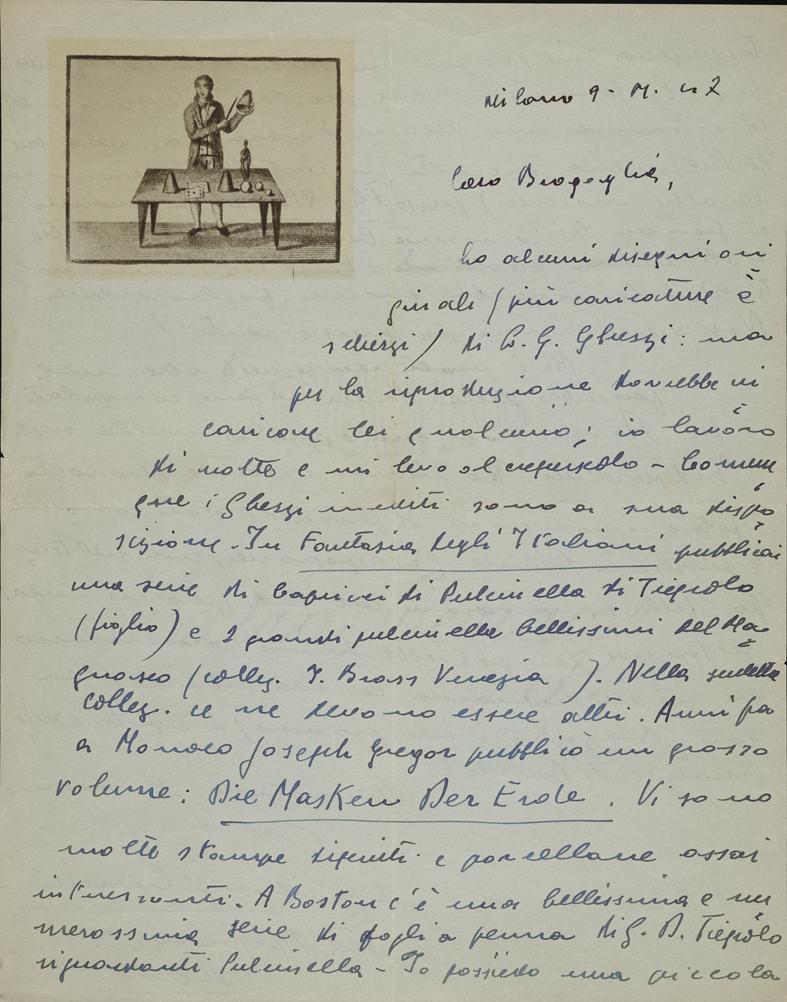 Milano 9 - M.
Caro Bragaglia,
ho alcuni disegni ori
ginali (più caricature e
scherzi) di G. Ghezzi: ma
per la riproduzione dovrebbe in
caricare lei qualcuno; io lavoro
di notte e mi levo al crepuscolo - Comun
que i Ghezzi inediti sono a sua dispo
sizione. In Fantasia degli Italiani pubblicai
una serie di Capricci di Pulcinella di Tiepolo
(figlio) e 2 grandi pulcinella bellissimi del Ma
gnasco (collez. I. Brass Venezia). Nella sudetta
collez. ce ne devono essere altri. Anni fa
a Monaco Joseph Gregor pubblicò un grosso
volume: Die Masken Der Erde. Vi sono
molte stampe dipinti e porcellane assai
interessanti. A Boston c'è una bellissima e nu
merossima serie di fogli a penna di G. B. Tiepolo
riguardanti Pulcinella - Io possiedo una piccola